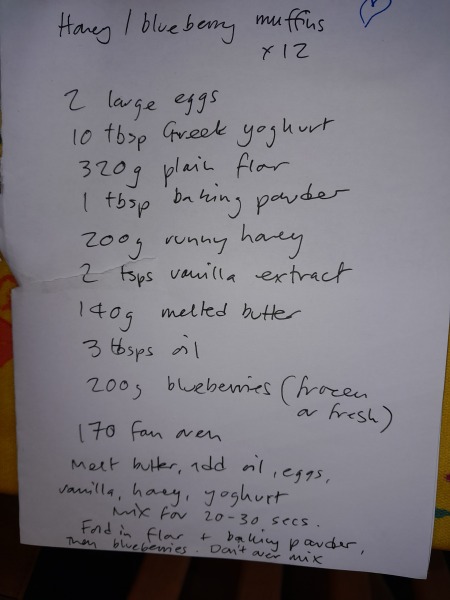 Honey / blueberry muffins
x 12
2 large eggs
10 tbsp Greek yoghurt
320g plain flour
1 tbsp baking powder
200g runny honey
2 tsps vanilla extract
140g melted butter
3 tbsps oil
200g blueberries (frozen
or fresh)
170 fan oven
Melt butter, add oil, eggs,
vanilla, honey, yoghurt
Mix for 20-30 secs.
Fold in flour + baking powder,
Then blueberries. Don't over mix